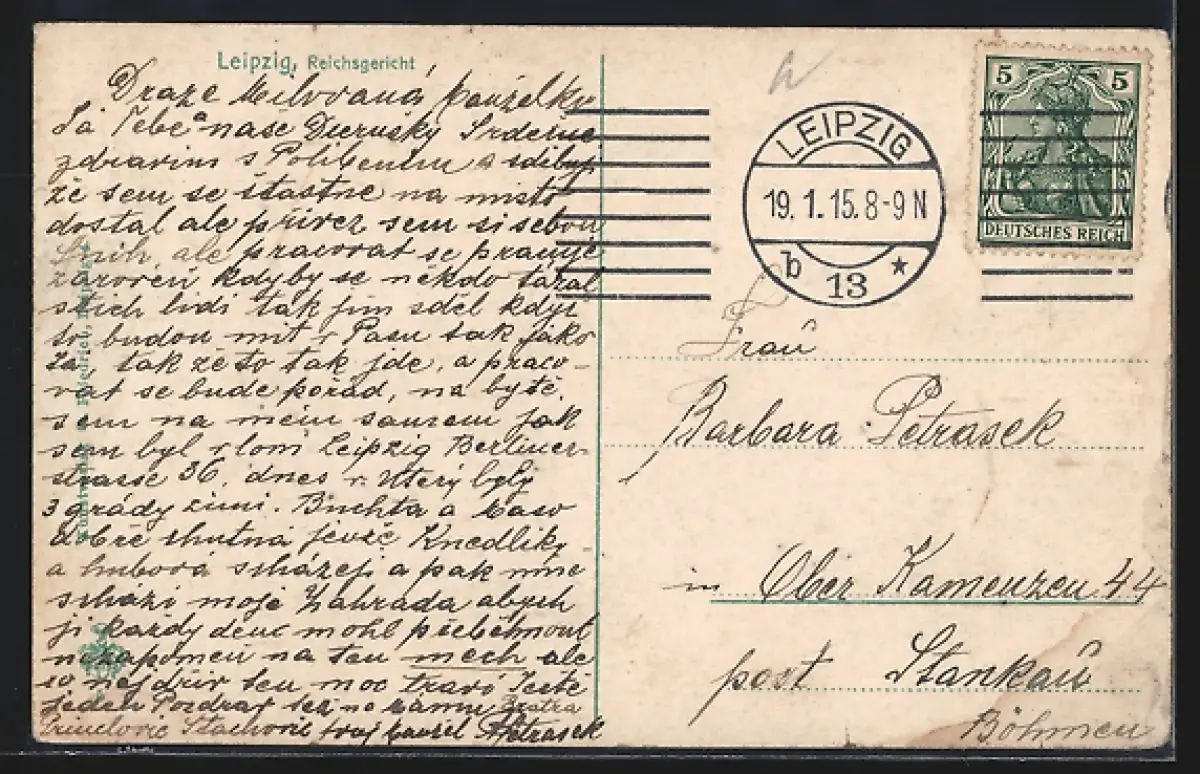 Leipzig, Reichsgericht
Draze Milovaná
Tebe naše Dcerušky Srdečne
zdravim s Polibenim a
že sem se štastne na misto
dostal ale přivez sem si sebou
Snih, ale pracovat se
zároveň kdyby se někdo tazal
lidi tak jim sděl když
to budou mit v Pasu tak jako
tak že to tak jde, a praco-
vat se bude pořad, na bytě
sem na mém samem jak
sem byl vloni Leipzig Berliner-
strasse 36, dnes v Utery byly
3 grády zimi. Buchta a Maso
dobře chutná Knedliky
a scházeji a pak mne
schazi moje Zahrada abych
ji kazdy den mohl přeběhnout
nezapomen na ten mech ale
co nej dřiv ten moc travi Ještě
jeden Pozdrav
Stachovic tvuj Petrasek
LEIPZIG
19. 1. 15. 8-9 N
b 13 *
5 5
DEUTSCHES REICH
Frau
Barbara Petrasek
in Ober Kamenzen 44
post Stankau
Böhmen